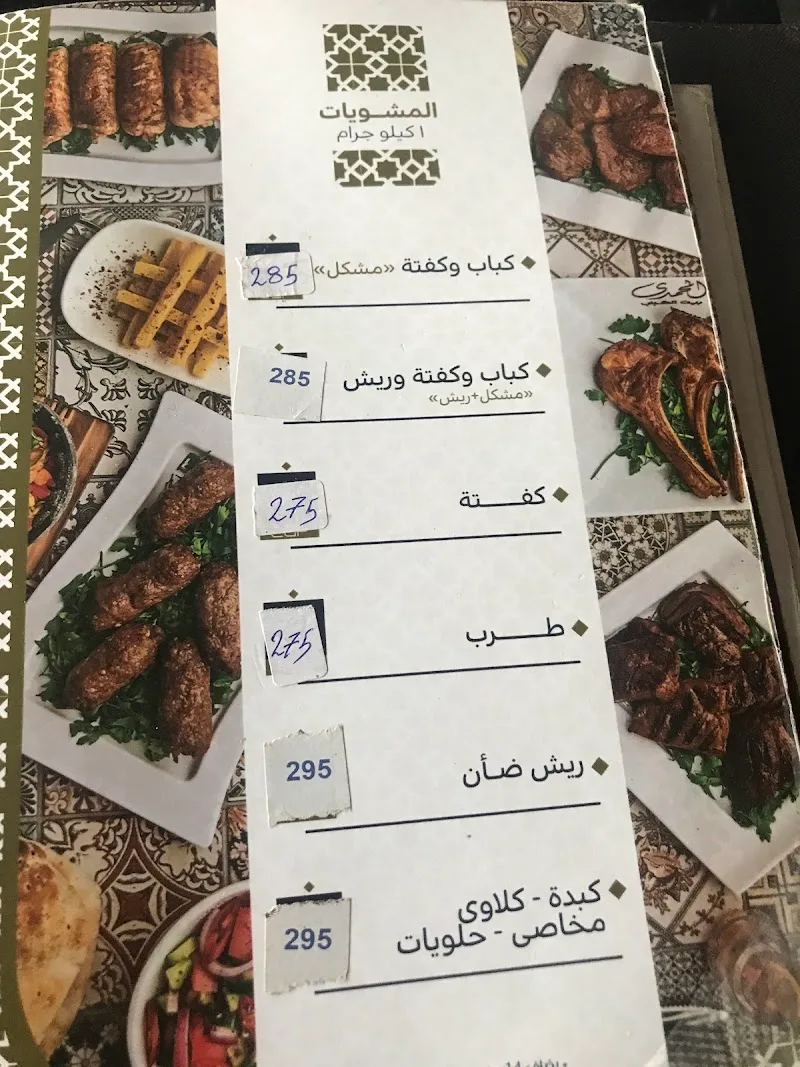 المشويات
١ كيلو جرام
كباب وكفتة «مشكل» 285
كباب وكفتة وريش 285
«مشكل+ريش»
كفتة 275
طرب 275
ريش ضأن 295
كبدة - كلاوى
مخاصى - حلويات 295